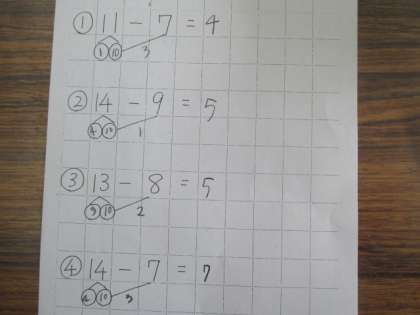 ① 11 - 7 = 4
① ⑩ 3
② 14 - 9 = 5
④ ⑩ 1
③ 13 - 8 = 5
③ ⑩ 2
④ 14 - 7 = 7
④ ⑩ 3